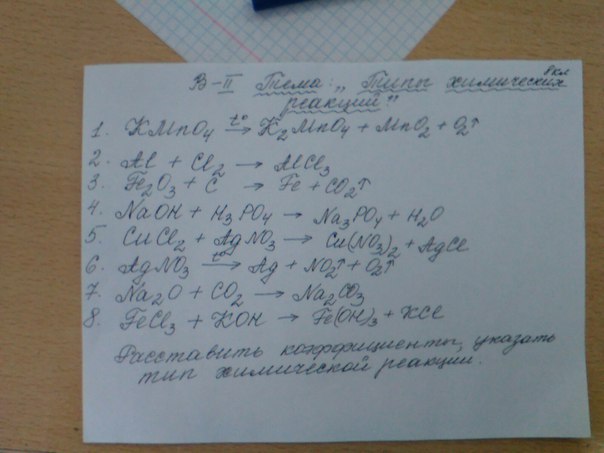 8 кл
В-II Тема: „Типы химических
реакций"
1. KMnO₄ →t° K₂MnO₄ + MnO₂ + O₂↑
2. Al + Cl₂ → AlCl₃
3. Fe₂O₃ + C → Fe + CO₂↑
4. NaOH + H₃PO₄ → Na₃PO₄ + H₂O
5. CuCl₂ + AgNO₃ → Cu(NO₃)₂ + AgCl
6. AgNO₃ →t° Ag + NO₂↑ + O₂↑
7. Na₂O + CO₂ → Na₂CO₃
8. FeCl₃ + KOH → Fe(OH)₃ + KCl
Расставить коэффициенты, указать
тип химической реакции.